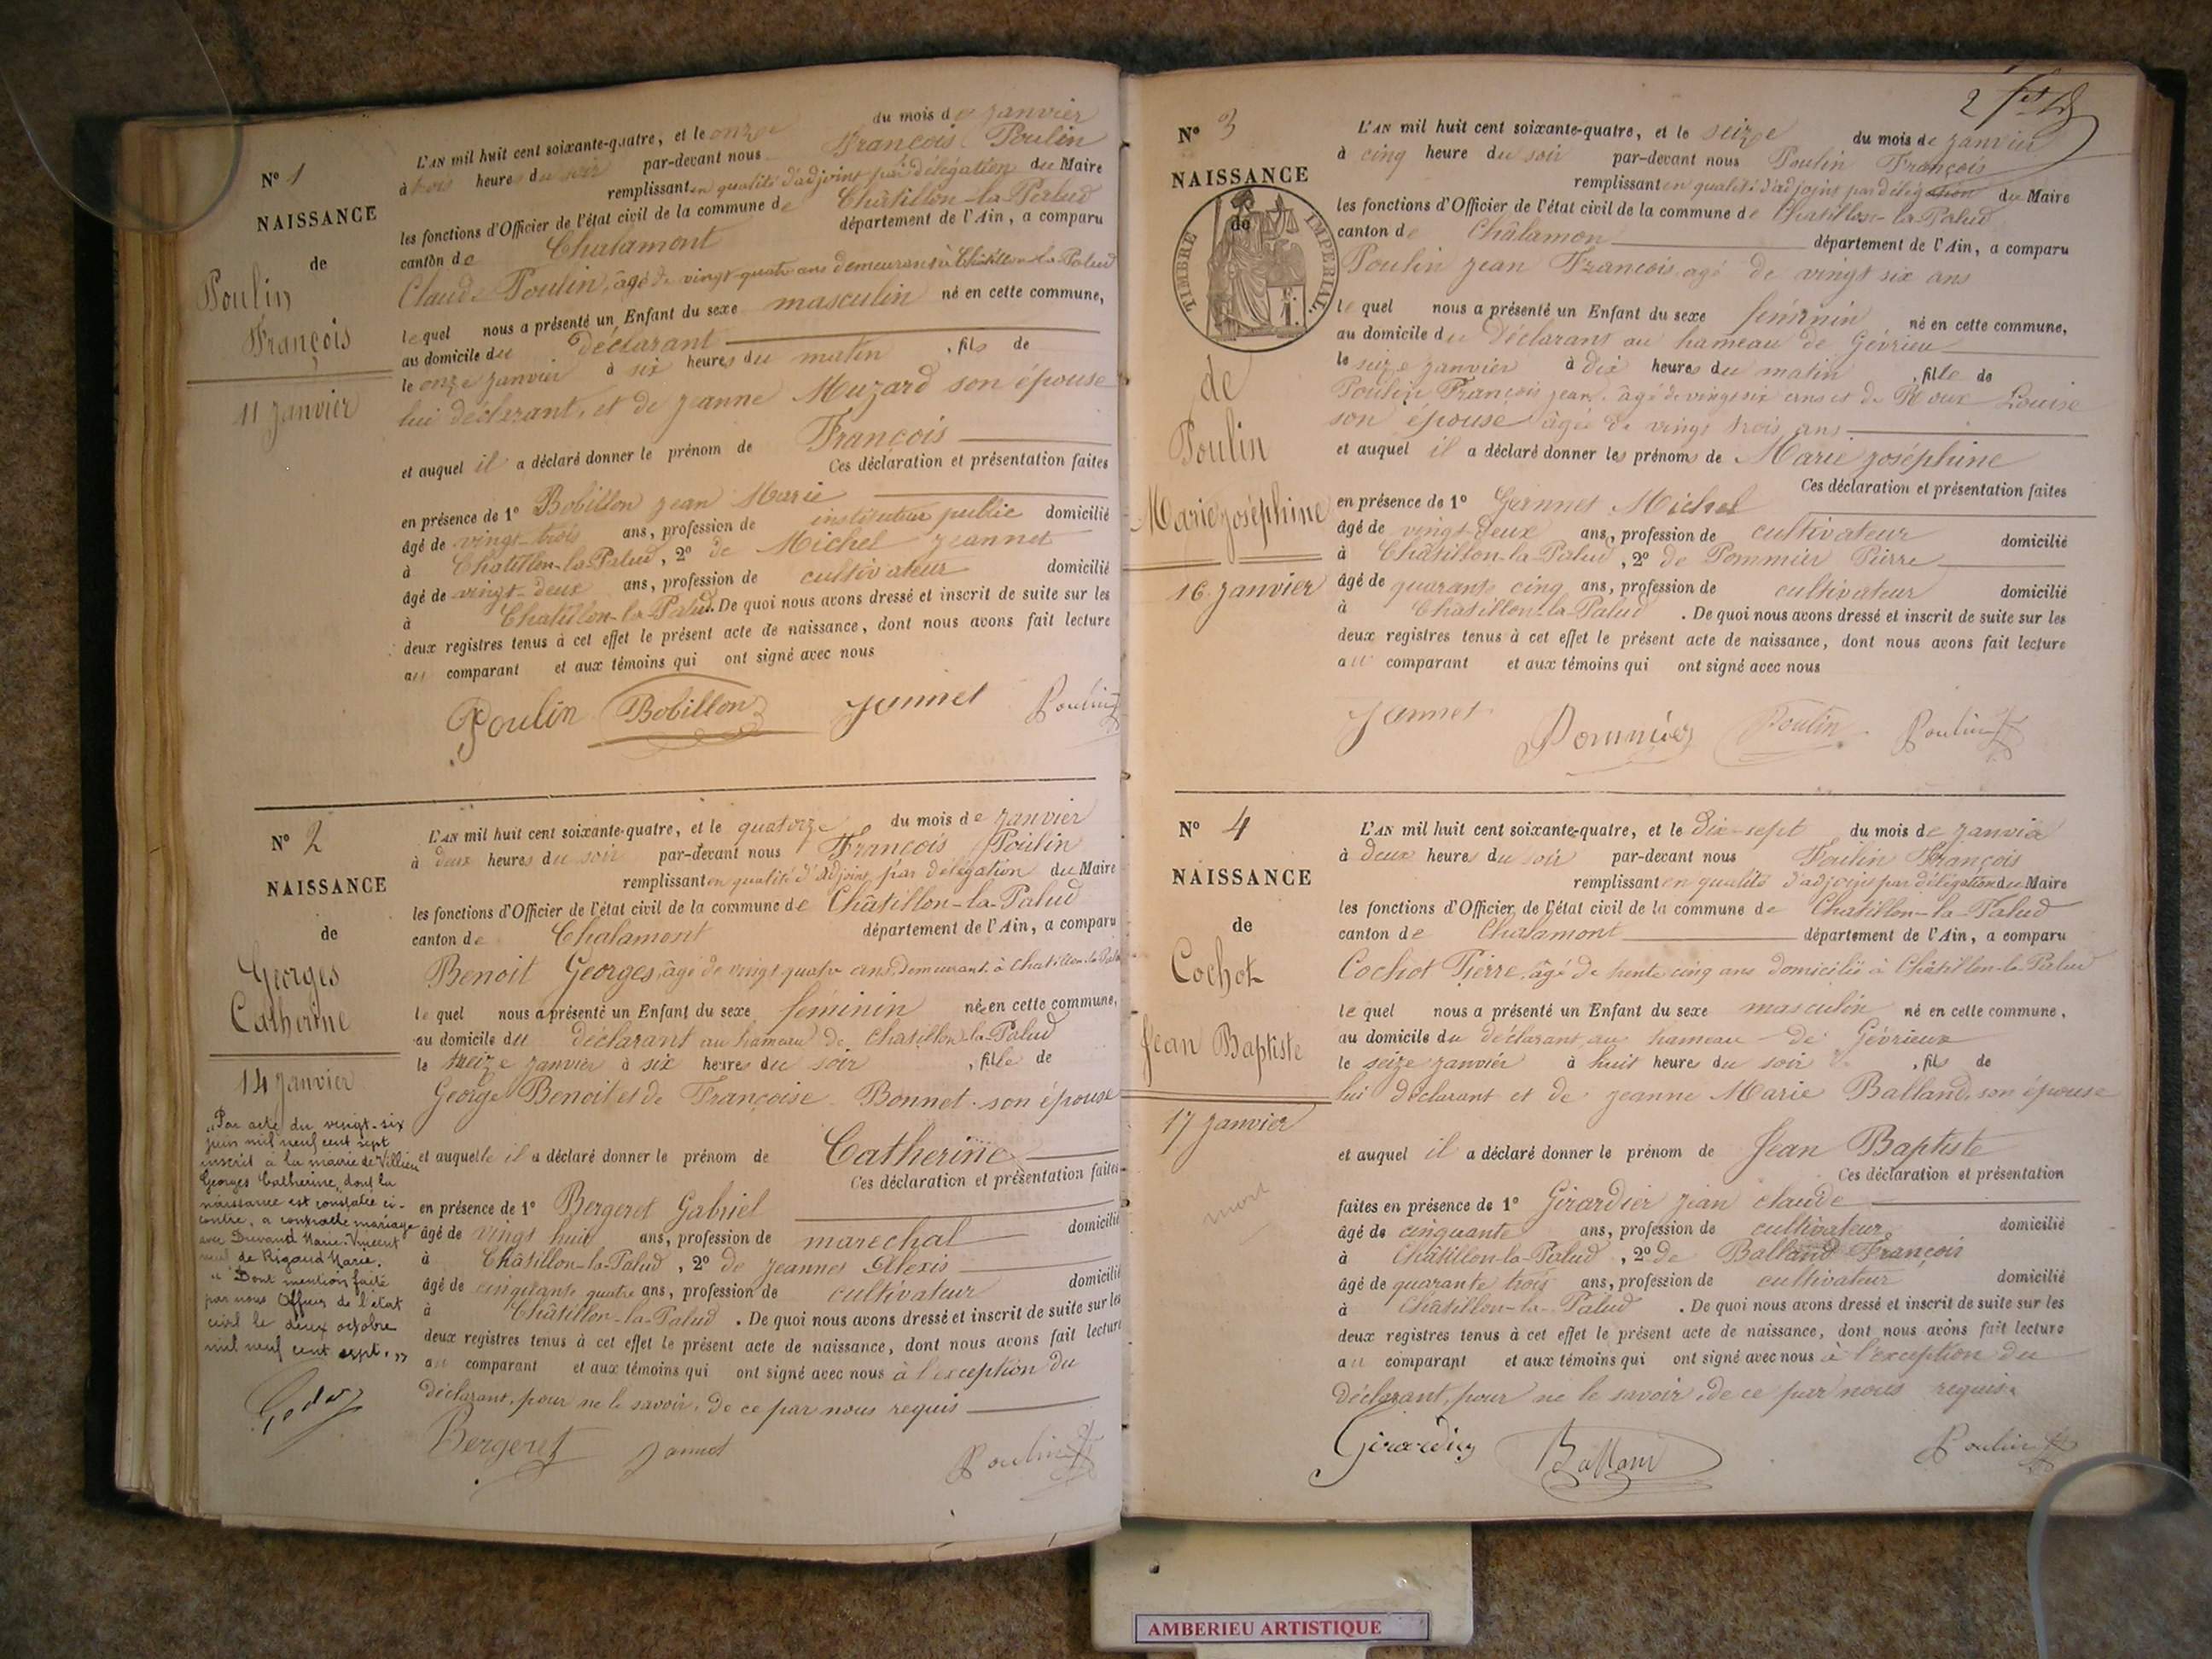 N° 1
NAISSANCE
de
Poulin
François
11 Janvier
L'AN mil huit cent soixante-quatre, et le onze du mois de Janvier
à trois heures du soir par-devant nous François Poulin
remplissant en qualité d'adjoint par délégation du Maire
les fonctions d'Officier de l'état civil de la commune de Châtillon-la-Palud
canton de Chalamont département de l'Ain, a comparu
Claude Poulin, âgé de vingt-quatre ans demeurant à Châtillon-la-Palud
lequel nous a présenté un Enfant du sexe masculin né en cette commune,
au domicile du déclarant
le onze Janvier à six heures du matin, fils de
lui déclarant, et de Jeanne Muzard son épouse
et auquel il a déclaré donner le prénom de François
Ces déclaration et présentation faites
en présence de 1° Bobillon Jean Marie
âgé de vingt-trois ans, profession de instituteur public domicilié
à Chatillon-la-Palud, 2° de Michel Jeannet
âgé de vingt-deux ans, profession de cultivateur domicilié
à Chatillon-la-Palud. De quoi nous avons dressé et inscrit de suite sur les
deux registres tenus à cet effet le présent acte de naissance, dont nous avons fait lecture
au comparant et aux témoins qui ont signé avec nous
Poulin Bobillon Jannet Poulin
N° 2
NAISSANCE
de
Georges
Catherine
14 Janvier
"Par acte du vingt-six
juin mil neuf cent sept
inscrit à la mairie de Villieu
Georges Catherine, dont la
naissance est constatée ci-
contre, a contracté mariage
avec Durand Marie-Vincent
veuf de Rigaud Marie.
" Dont mention faite
par nous Officier de l'état
civil le deux octobre
mil neuf cent sept."
L'AN mil huit cent soixante-quatre, et le quatorze du mois de Janvier
à deux heures du soir par-devant nous François Poulin
remplissant en qualité d'adjoint par délégation du Maire
les fonctions d'Officier de l'état civil de la commune de Châtillon-la-Palud
canton de Chalamont département de l'Ain, a comparu
Benoit Georges, âgé de vingt quatre ans, demeurant à Chatillon-la-Palud
lequel nous a présenté un Enfant du sexe féminin née en cette commune,
au domicile du déclarant au hameau de Chatillon-la-Palud
le treize Janvier à six heures du soir, fille de
George Benoit et de Françoise Bonnet son épouse
et auquelle il a déclaré donner le prénom de Catherine
Ces déclaration et présentation faites
en présence de 1° Bergeret Gabriel
âgé de vingt huit ans, profession de marechal domicilié
à Châtillon-la-Palud, 2° de Jeannet Alexis
âgé de cinquante quatre ans, profession de cultivateur domicilié
à Châtillon-la-Palud. De quoi nous avons dressé et inscrit de suite sur les
deux registres tenus à cet effet le présent acte de naissance, dont nous avons fait lecture
au comparant et aux témoins qui ont signé avec nous à l'exception du
déclarant, pour ne le savoir, de ce par nous requis
Bergeret Jannet Poulin
2
N° 3
NAISSANCE
de
TIMBRE IMPERIAL
de
Poulin
Marie Joséphine
16 Janvier
L'AN mil huit cent soixante-quatre, et le seize du mois de Janvier
à cinq heure du soir par-devant nous Poulin François
remplissant en qualité d'adjoint par délégation du Maire
les fonctions d'Officier de l'état civil de la commune de Chatillon-la-Palud
canton de Châlamon département de l'Ain, a comparu
Poulin Jean François, agé de vingt six ans
lequel nous a présenté un Enfant du sexe féminin né en cette commune,
au domicile du Déclarant au hameau de Gévrieu
le seize Janvier à dix heures du matin, fille de
Poulin François Jean, âgé de vingt six ans et de Roux Louise
son épouse âgée de vingt trois ans
et auquel il a déclaré donner les prénoms de Marie Joséphine
Ces déclaration et présentation faites
en présence de 1° Jeannet Michel
âgé de vingt-deux ans, profession de cultivateur domicilié
à Châtillon-la-Palud, 2° de Pommier Pierre
âgé de quarante cinq ans, profession de cultivateur domicilié
à Chatillon-la-Palud. De quoi nous avons dressé et inscrit de suite sur les
deux registres tenus à cet effet le présent acte de naissance, dont nous avons fait lecture
au comparant et aux témoins qui ont signé avec nous
Jannet Pommier Poulin Poulin
N° 4
NAISSANCE
de
Cochet
Jean Baptiste
17 Janvier
mort
L'AN mil huit cent soixante-quatre, et le dix-sept du mois de Janvier
à deux heures du soir par-devant nous Poulin François
remplissant en qualité d'adjoint par délégation du Maire
les fonctions d'Officier de l'état civil de la commune de Chatillon-la-Palud
canton de Chalamont département de l'Ain, a comparu
Cochot Pierre, âgé de trente cinq ans domicilié à Châtillon-la-Palud
lequel nous a présenté un Enfant du sexe masculin né en cette commune,
au domicile du déclarant, au hameau de Gévrieux
le seize Janvier à huit heures du soir, fils de
lui déclarant et de Jeanne Marie Balland, son épouse
et auquel il a déclaré donner le prénom de Jean Baptiste
Ces déclaration et présentation
faites en présence de 1° Girardier Jean Claude
âgé de cinquante ans, profession de cultivateur domicilié
à Châtillon-la-Palud, 2° de Balland François
âgé de quarante trois ans, profession de cultivateur domicilié
à Châtillon-la-Palud. De quoi nous avons dressé et inscrit de suite sur les
deux registres tenus à cet effet le présent acte de naissance, dont nous avons fait lecture
au comparant et aux témoins qui ont signé avec nous à l'exception du
déclarant, pour ne le savoir, de ce par nous requis.
Girardier Balland Poulin
AMBERIEU ARTISTIQUE